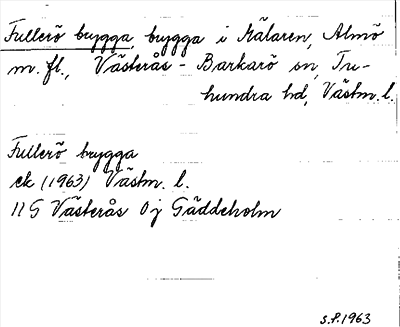 Fullerö brygga, brygga i Mälaren, Almö
m. fl., Västerås-Barkarö sn, Tu-
hundra hd, Västm. l.
Fullerö brygga
ek (1963) Västm. l.
11 G Västerås 0j Gäddeholm
S.P. 1963